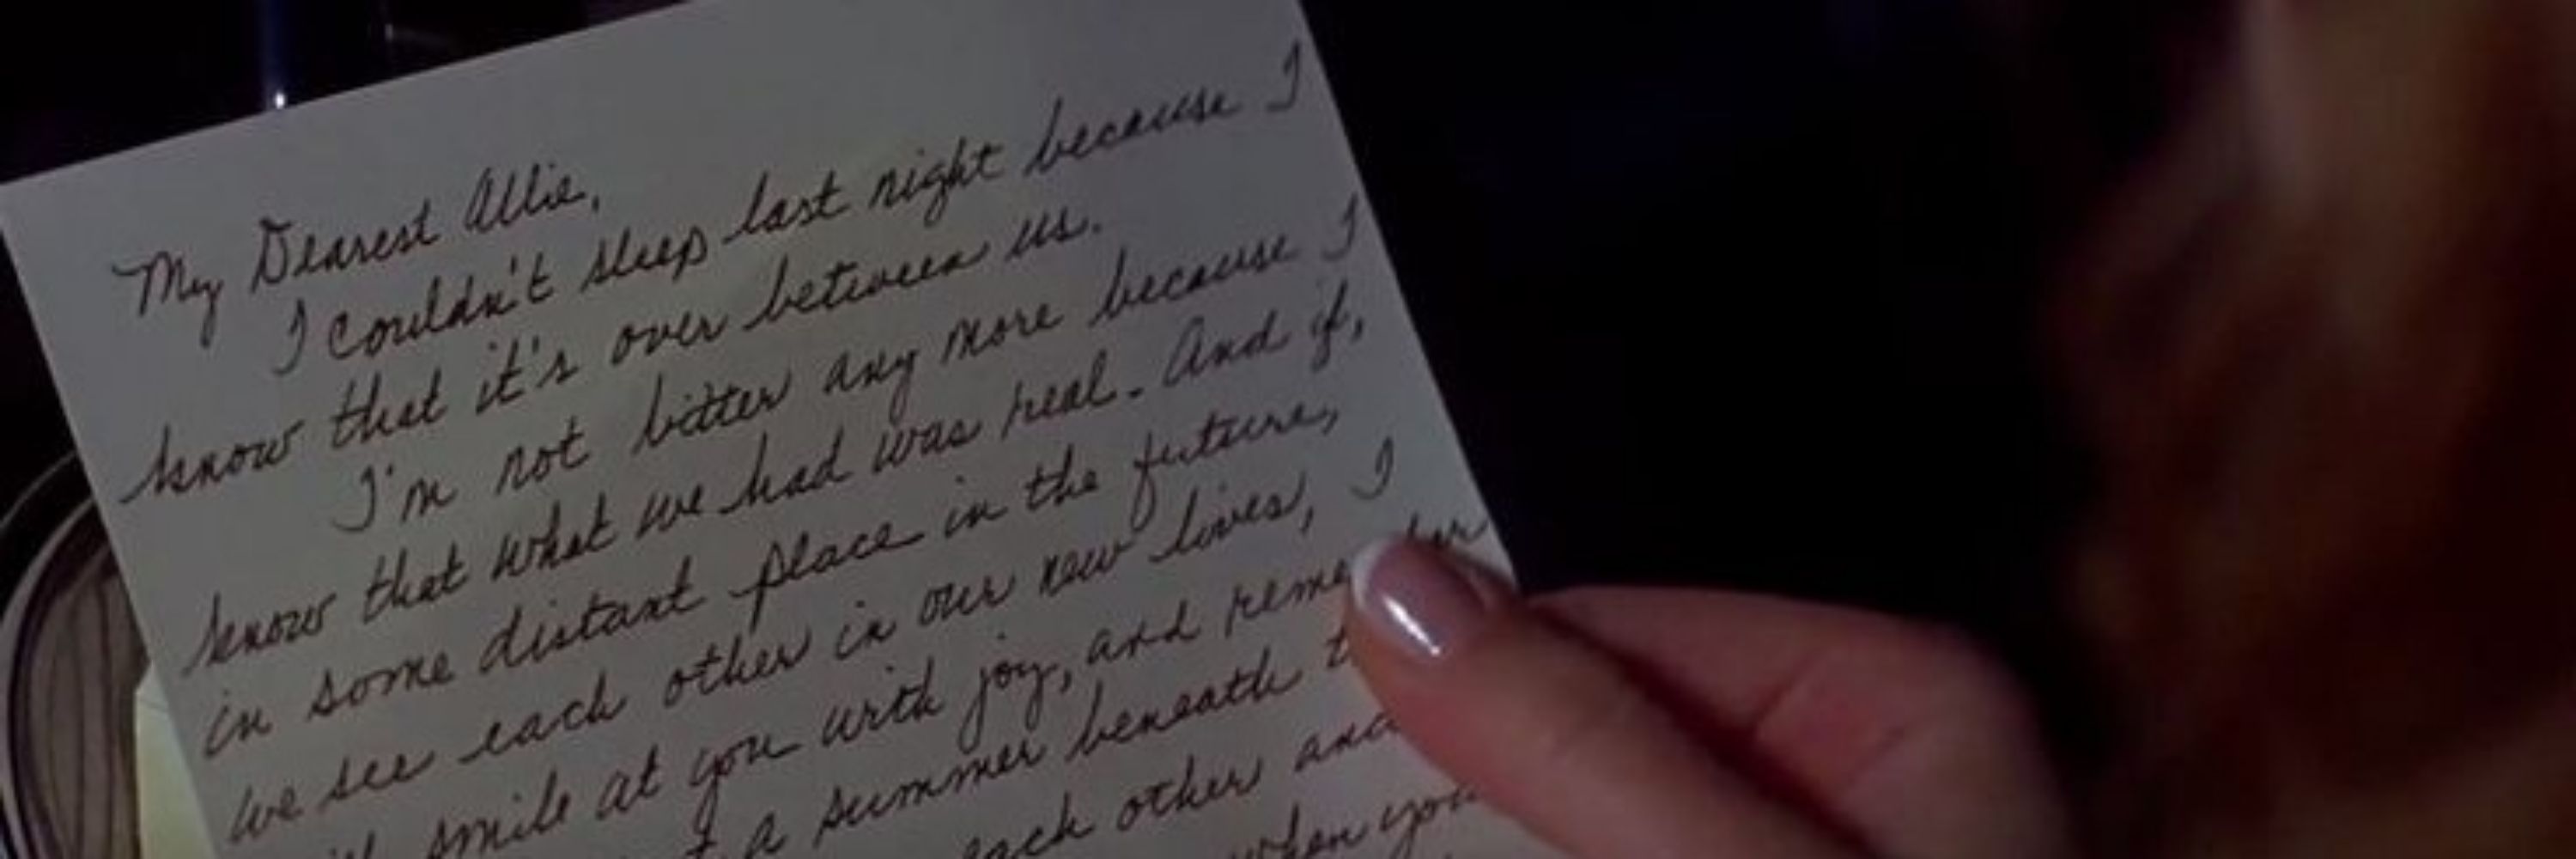 My Dearest Allie,
I couldn't sleep last night because I
know that it's over between us.
I'm not bitter any more because I
know that what we had was real. And if,
in some distant place in the future,
we see each other in our new lives, I
smile at you with joy, and
a summer beneath
each other and
when you